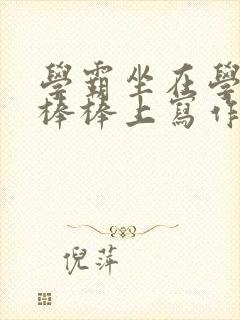 學霸坐在學
棒棒上寫作
倪萍